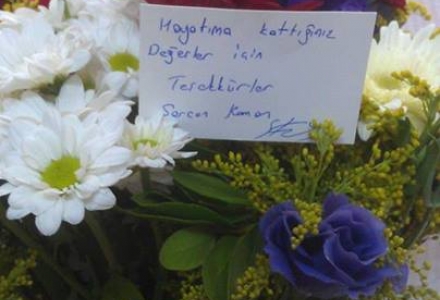 Hayatıma kattığınız
Değerler için
Teşekkürler
Sercan Kaman